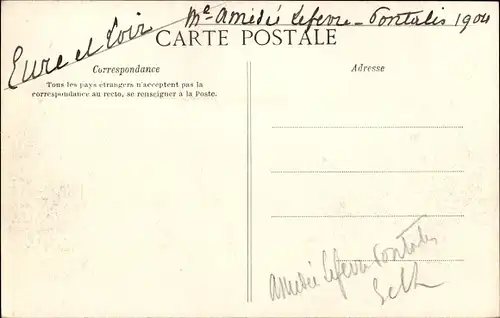 Eure et Loir
Me Amédée Lefevre-Pontalis 1904
CARTE POSTALE
Correspondance
Tous les pays étrangers n'acceptent pas la
correspondance au recto, se renseigner à la Poste.
Adresse
Amédée Lefevre Pontalis